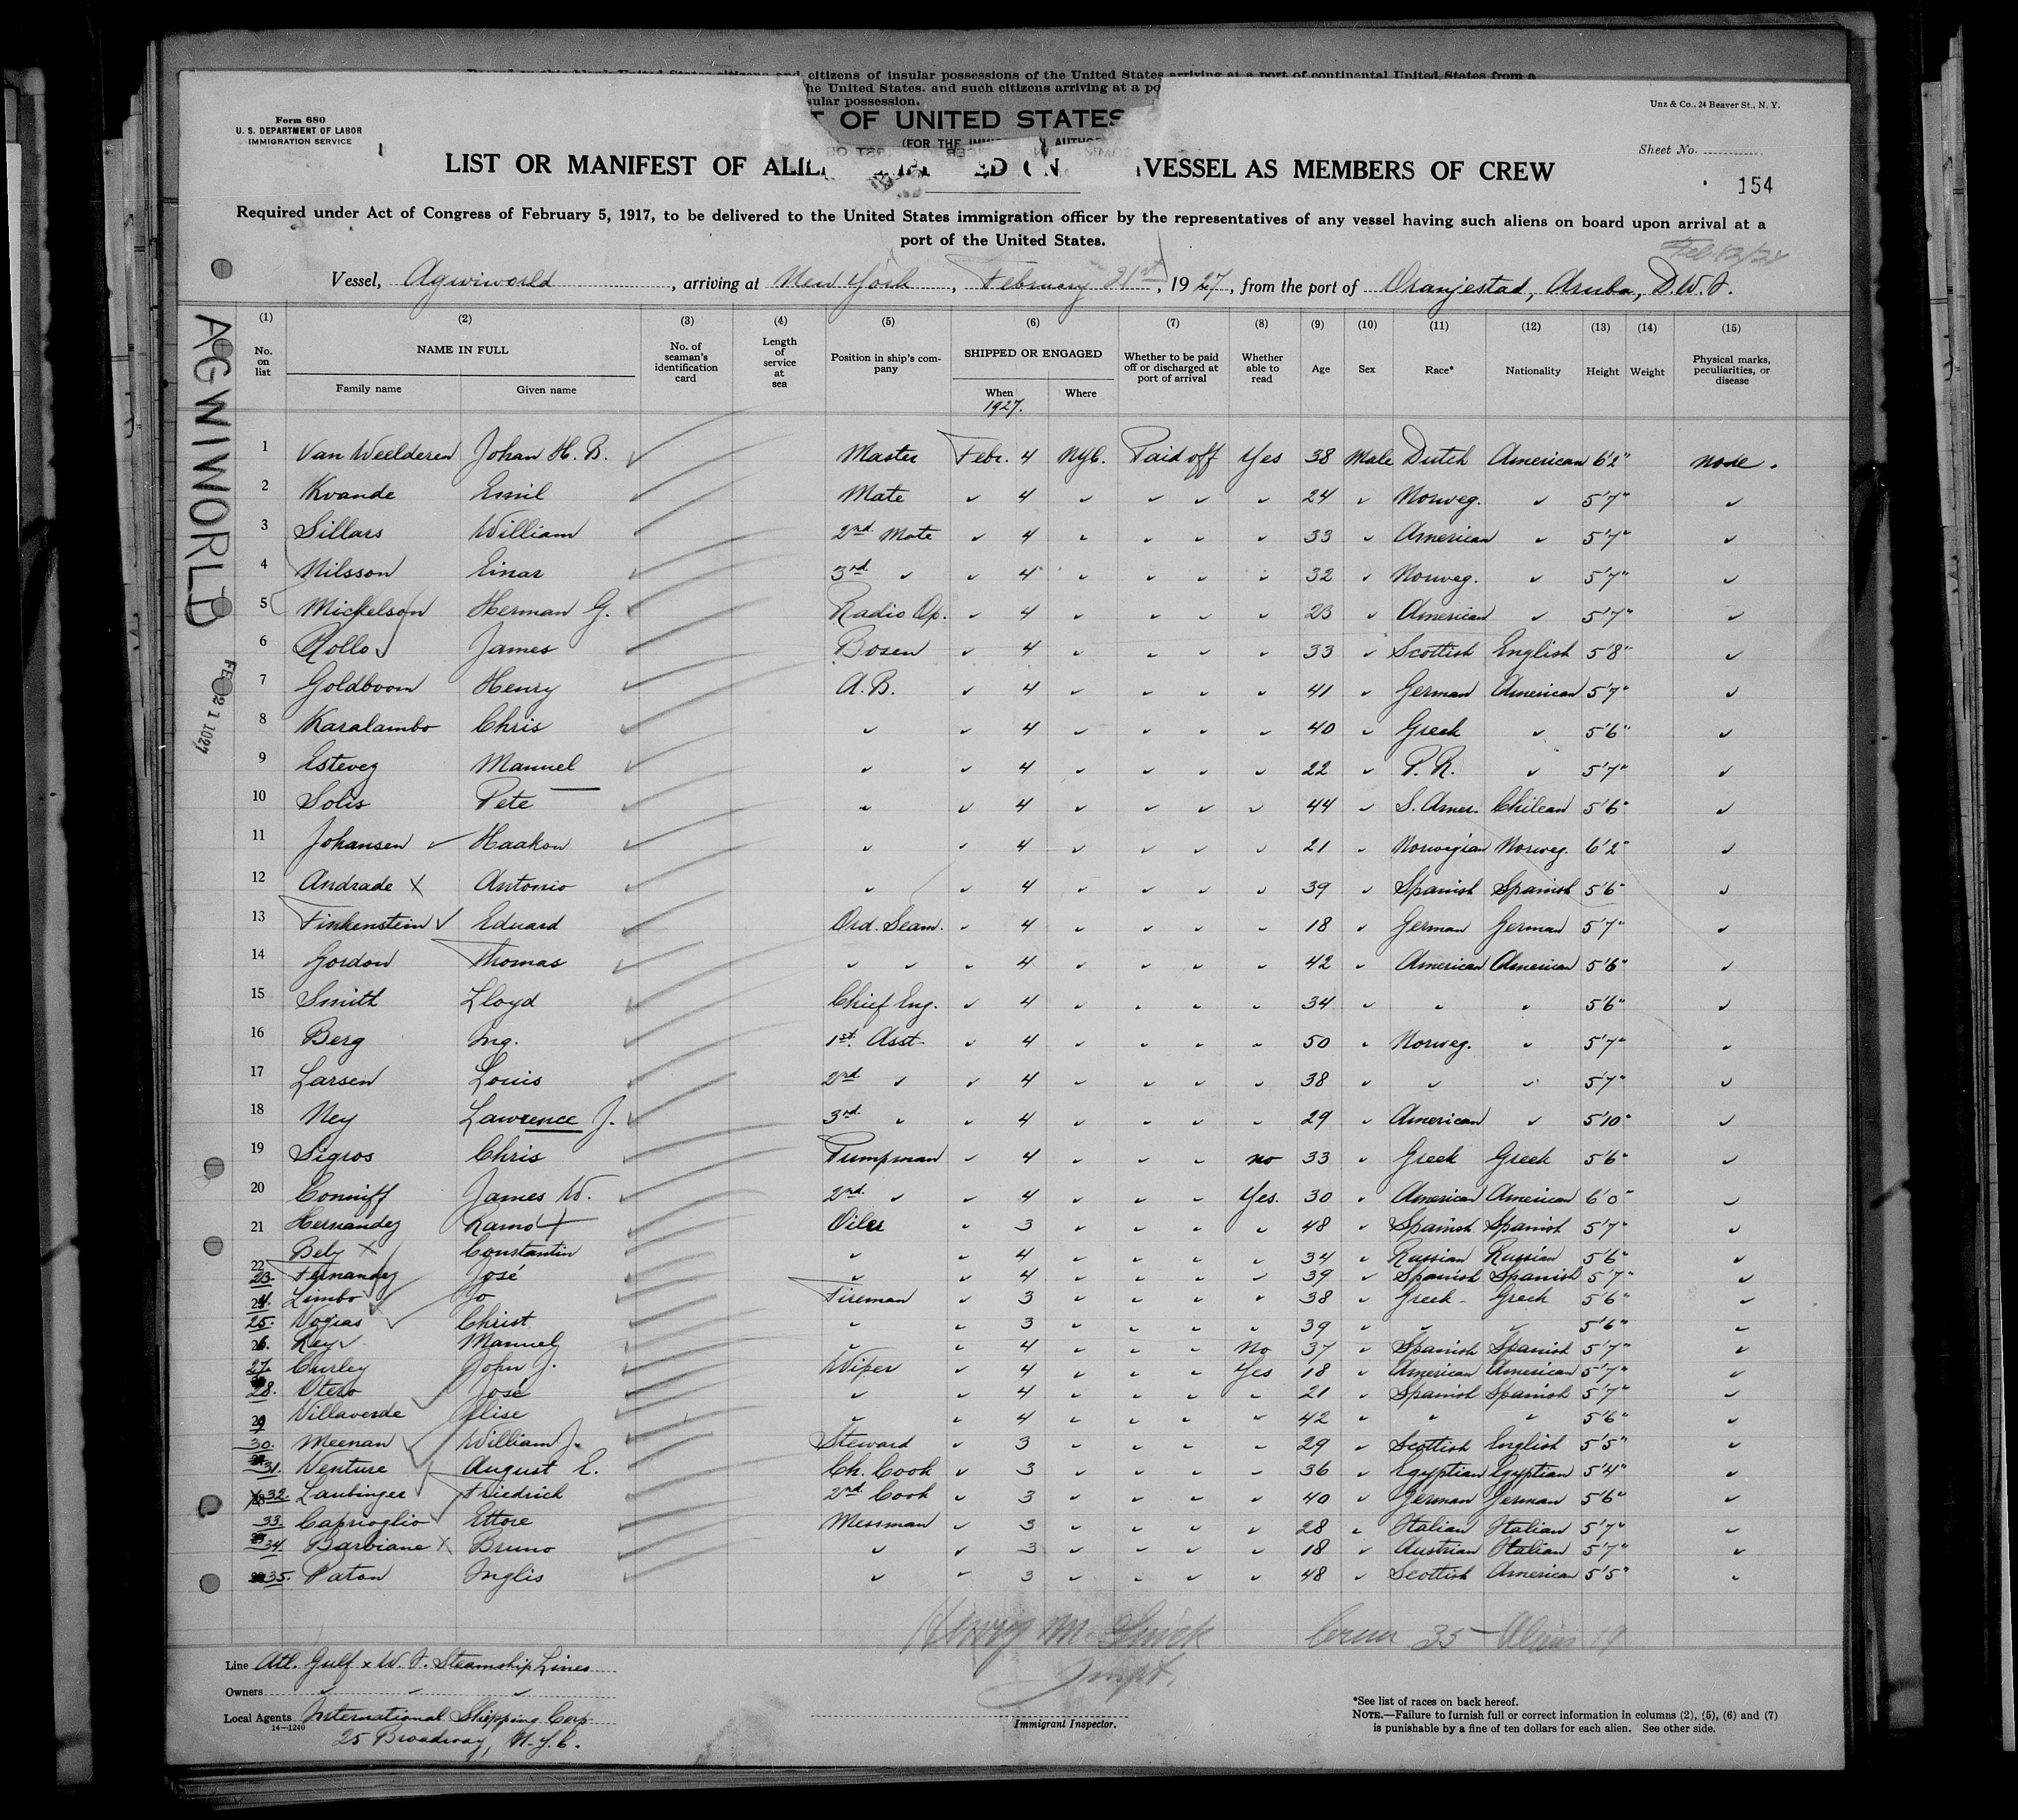 citizens of insular possessions of the United States arriving at a port of continental United States from a
the United States. and such citizens arriving at a po
sular possession.
T OF UNITED STATES
(FOR THE
Form 680
U. S. DEPARTMENT OF LABOR
IMMIGRATION SERVICE
Unz & Co., 24 Beaver St., N. Y.
Sheet No.
154
LIST OR MANIFEST OF ED ON VESSEL AS MEMBERS OF CREW
Required under Act of Congress of February 5, 1917, to be delivered to the United States immigration officer by the representatives of any vessel having such aliens on board upon arrival at a
port of the United States.
Vessel, Agwiworld, arriving at New York, February 21st, 1927, from the port of Oranjestad, Aruba, D.W.I.
AGWIWORLD
(1) (2) (3) (4) (5) (6) (7) (8) (9) (10) (11) (12) (13) (14) (15)
No. on list NAME IN FULL Family name Given name No. of seaman's identification card Length of service at sea Position in ship's company SHIPPED OR ENGAGED When 1927. Where Whether to be paid off or discharged at port of arrival Whether able to read Age Sex Race* Nationality Height Weight Physical marks, peculiarities, or disease
1 Van Weelderen Johan H. B. ✓ Master Febr. 4 NYC. Paid off Yes 38 Male Dutch American 6'2" none.
2 Kvande Emil ✓ Mate ✓ 4 ✓ ✓ ✓ ✓ 24 ✓ Norweg. ✓ 5'7" ✓
3 Sillars William ✓ 2nd Mate ✓ 4 ✓ ✓ ✓ ✓ 33 ✓ American ✓ 5'7" ✓
4 Nilsson Einar ✓ 3rd ✓ ✓ 4 ✓ ✓ ✓ ✓ 32 ✓ Norweg. ✓ 5'7" ✓
5 Mickelson Herman G. ✓ Radio Op. ✓ 4 ✓ ✓ ✓ ✓ 23 ✓ American ✓ 5'7" ✓
6 Rollo ✓ James ✓ Bosen ✓ 4 ✓ ✓ ✓ ✓ 33 ✓ Scottish English 5'8" ✓
7 Goldboom Henry ✓ A.B. ✓ 4 ✓ ✓ ✓ ✓ 41 ✓ German American 5'7" ✓
8 Karalambo Chris ✓ ✓ ✓ 4 ✓ ✓ ✓ ✓ 40 ✓ Greek ✓ 5'6" ✓
9 Estevez Manuel ✓ ✓ ✓ 4 ✓ ✓ ✓ ✓ 22 ✓ P.R. ✓ 5'7" ✓
10 Solis Pete ✓ ✓ ✓ 4 ✓ ✓ ✓ ✓ 44 ✓ S. Amer. Chilean 5'6" ✓
11 Johansen ✓ Haakon ✓ ✓ ✓ 4 ✓ ✓ ✓ ✓ 21 ✓ Norwegian Norweg. 6'2" ✓
12 Andrade X Antonio ✓ ✓ ✓ 4 ✓ ✓ ✓ ✓ 39 ✓ Spanish Spanish 5'6" ✓
13 Finkenstein ✓ Eduard ✓ Ord. Seam. ✓ 4 ✓ ✓ ✓ ✓ 18 ✓ German German 5'7" ✓
14 Gordon Thomas ✓ ✓ ✓ ✓ 4 ✓ ✓ ✓ ✓ 42 ✓ American American 5'6" ✓
15 Smith Lloyd ✓ Chief Eng. ✓ 4 ✓ ✓ ✓ ✓ 34 ✓ ✓ ✓ 5'6" ✓
16 Berg Ing. ✓ 1st Asst. ✓ 4 ✓ ✓ ✓ ✓ 50 ✓ Norweg. ✓ 5'7" ✓
17 Larsen Louis ✓ 2nd ✓ ✓ 4 ✓ ✓ ✓ ✓ 38 ✓ ✓ ✓ 5'7" ✓
18 Ney Lawrence J. ✓ 3rd ✓ ✓ 4 ✓ ✓ ✓ ✓ 29 ✓ American ✓ 5'10" ✓
19 Sigros Chris ✓ Pumpman ✓ 4 ✓ ✓ ✓ no 33 ✓ Greek Greek 5'6" ✓
20 Conniff James W. ✓ 2nd ✓ ✓ 4 ✓ ✓ ✓ Yes. 30 ✓ American American 6'0" ✓
21 Hernandez Ramo X ✓ Oiler ✓ 3 ✓ ✓ ✓ ✓ 48 ✓ Spanish Spanish 5'7" ✓
22 Bely X Constantin ✓ ✓ ✓ 4 ✓ ✓ ✓ ✓ 34 ✓ Russian Russian 5'6" ✓
23. Fernandez ✓ José ✓ ✓ ✓ 4 ✓ ✓ ✓ ✓ 39 ✓ Spanish Spanish 5'7" ✓
24. Limbo ✓ Jo ✓ Fireman ✓ 3 ✓ ✓ ✓ ✓ 38 ✓ Greek Greek 5'6" ✓
25. Vogias ✓ Christ ✓ ✓ ✓ 3 ✓ ✓ ✓ ✓ 39 ✓ ✓ ✓ 5'6" ✓
26. Rey ✓ Manuel ✓ ✓ ✓ 4 ✓ ✓ ✓ No 37 ✓ Spanish Spanish 5'7" ✓
27. Curley John J. ✓ Wiper ✓ 4 ✓ ✓ ✓ Yes 18 ✓ American American 5'7" ✓
28. Otero ✓ José ✓ ✓ ✓ 4 ✓ ✓ ✓ ✓ 21 ✓ Spanish Spanish 5'7" ✓
29 Villaverde Elise ✓ ✓ ✓ 4 ✓ ✓ ✓ ✓ 42 ✓ ✓ ✓ 5'6" ✓
30. Meenan ✓ William J. ✓ Steward ✓ 3 ✓ ✓ ✓ ✓ 29 ✓ Scottish English 5'5" ✓
31. Venture ✓ August E. ✓ Ch. Cook ✓ 3 ✓ ✓ ✓ ✓ 36 ✓ Egyptian Egyptian 5'4" ✓
32. Laubinger ✓ Friedrich ✓ 2nd Cook ✓ 3 ✓ ✓ ✓ ✓ 40 ✓ German German 5'6" ✓
33. Caprioglio ✓ Ettore ✓ Messman ✓ 3 ✓ ✓ ✓ ✓ 28 ✓ Italian Italian 5'7" ✓
34. Barbiane X Bruno ✓ ✓ ✓ 3 ✓ ✓ ✓ ✓ 18 ✓ Austrian Italian 5'7" ✓
35. Paton Inglis ✓ ✓ ✓ 3 ✓ ✓ ✓ ✓ 48 ✓ Scottish American 5'5" ✓
Crew 35 - Aliens 19
Inspt.
Line Atl. Gulf & W. I. Steamship Lines
Owners ✓ ✓ ✓
Local Agents International Shipping Corp
14—1240
25 Broadway, N.Y.C.
Immigrant Inspector.
*See list of races on back hereof.
NOTE.—Failure to furnish full or correct information in columns (2), (5), (6) and (7)
is punishable by a fine of ten dollars for each alien. See other side.